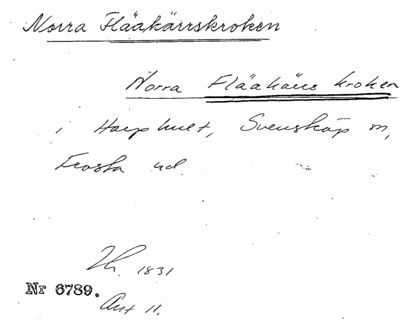 Norra Flääkärrskroken
Norra Flääkärrs kroken
i Harphult, Svensköp sn,
Frosta hd.
Lh. 1831
Nr 6789.
Akt 11.